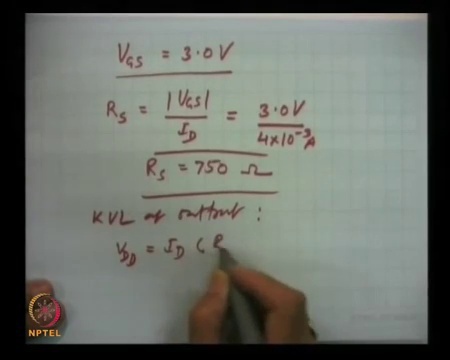 V_GS = 3.0 V
R_S = |V_GS| / I_D = 3.0 V / 4×10⁻³ A
R_S = 750 Ω
KVL at output :
V_DD = I_D ( R
NPTEL